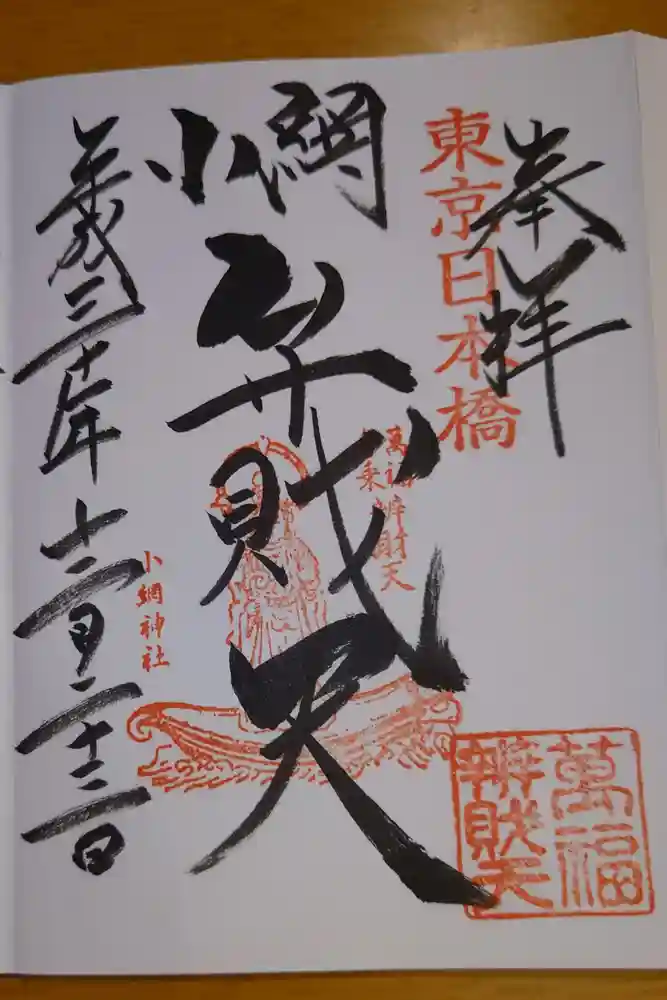 奉拝
東京日本橋
小網
弁財天
萬福
舟乗弁財天
小網神社
平成三十年
十二月二十三日
萬福
辨財天